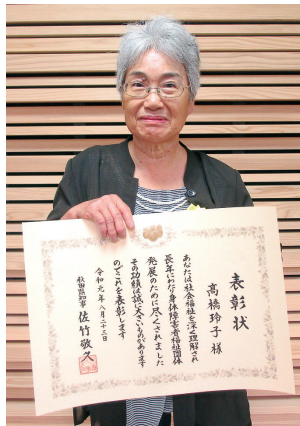 表彰状
髙橋玲子様
あなたは社会福祉を深く理解され
長年にわたり身体障害者福祉団体
発展のために尽くされました
その功績は誠に大きいものがあります
のでこれを表彰します
令和元年八月二十三日
秋田県知事 佐竹敬久